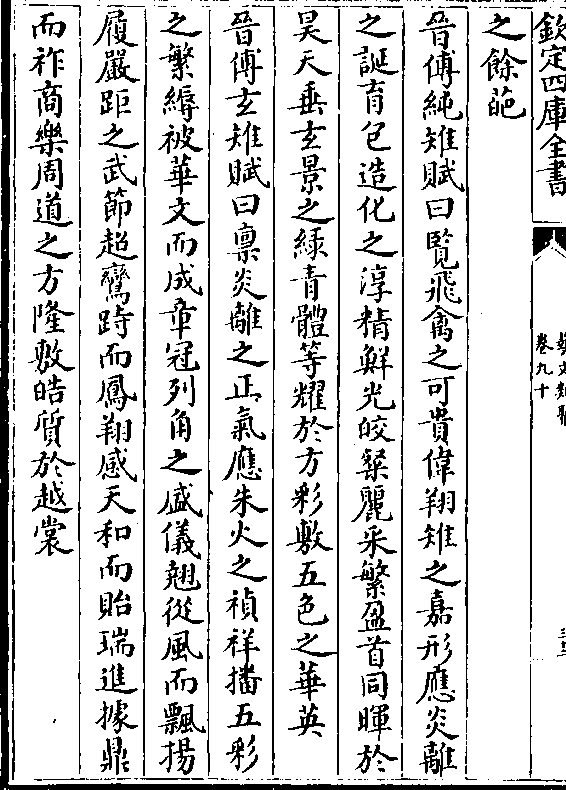 欽定四庫全書
卷九十
之餘葩
晉傅純雉賦曰覽飛禽之可貴偉翔雉之嘉形應炎離
之誕育包造化之淳精鮮光皎粲麗采繁盈首同暉於
昊天垂玄景之綠青體等耀於方彩敷五色之華英
晉傅玄雉賦曰禀炎離之正氣應朱火之禎祥播五彩
之繁縟被華文而成章冠列角之盛儀翹從風而飄揚
履嚴距之武節超鸞跱而鳳翔感天和而貽瑞進據鼎
而祚商樂周道之方隆敷皓質於越裳